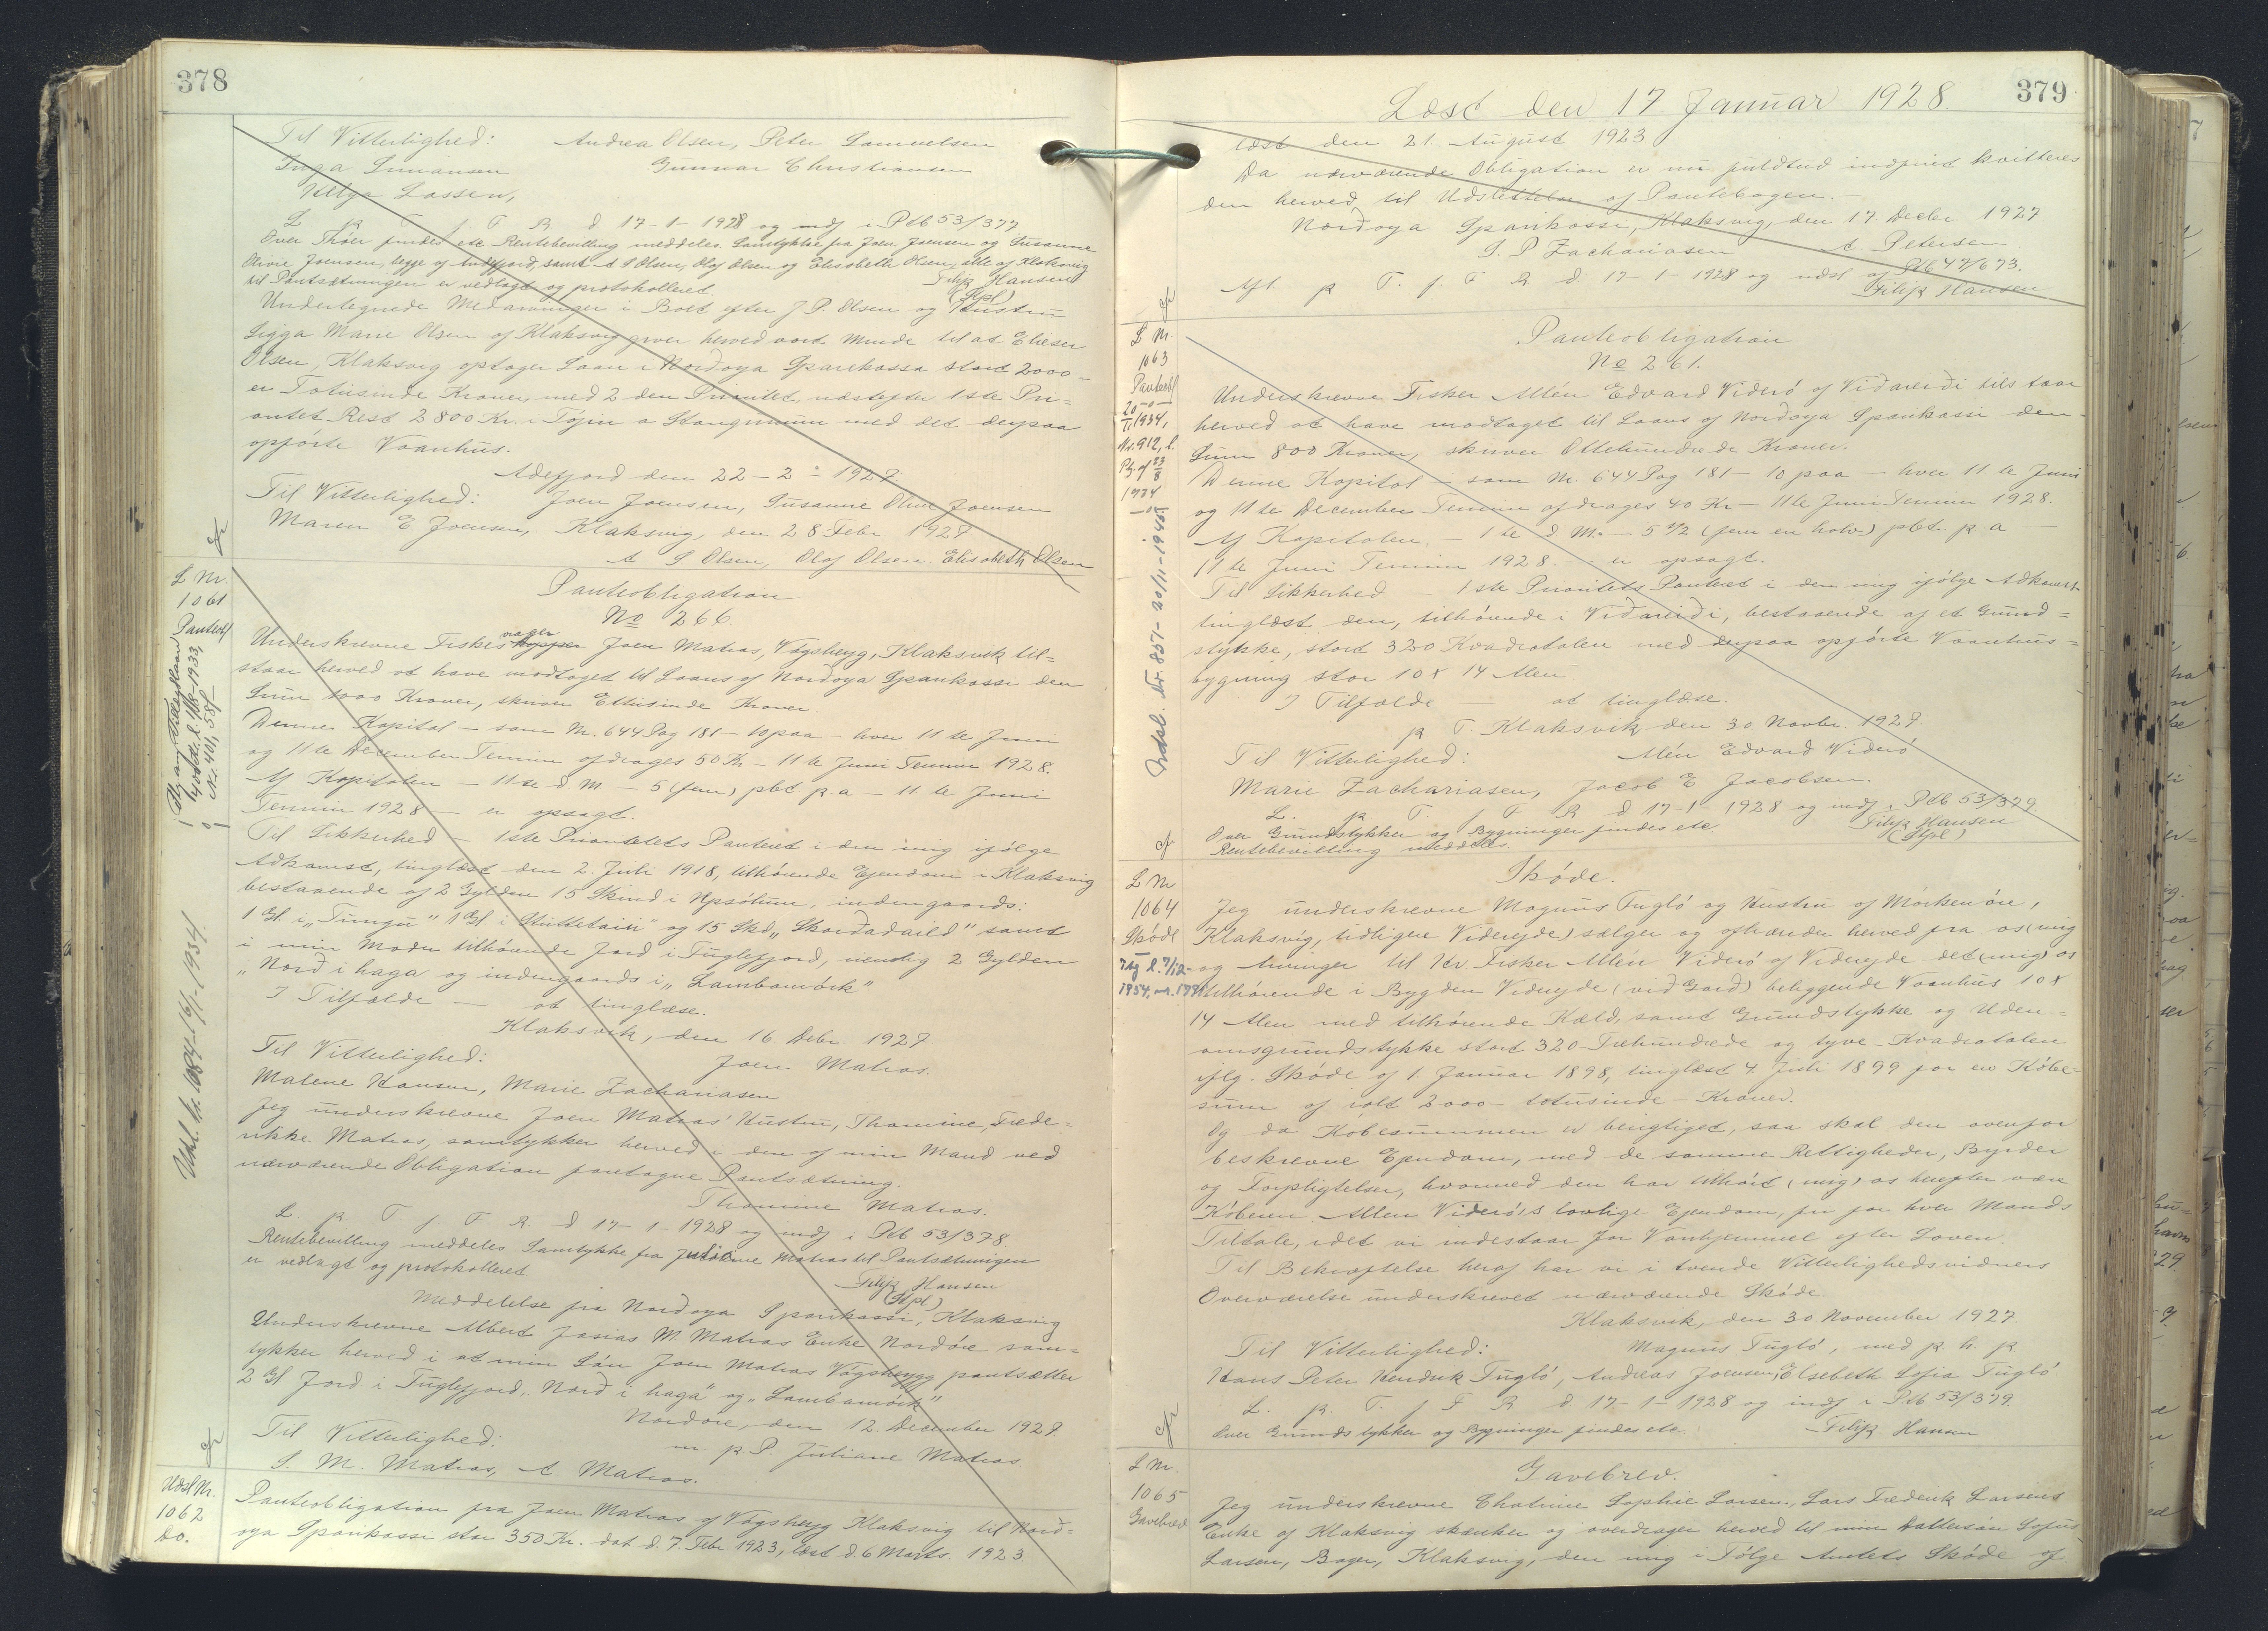 378
Til Vitterlighed: Andrea Olsen, Peter Samuelsen
Inga Simonsen Gunnar Christiansen
Helga Lassen,
L p T f F R d 17-1-1928 og indf i Ptb 53/377
Over Thøer findes etc Rentebevilling meddeles. Samtykke fra Joen Joensen og Susanne
Olivie Joensen, begge af Andefjord, samt A S Olsen, Olaf Olsen og Elisabeth Olsen, alle af Klaksvig
til Pantsætningen er vedlagt og protokolleret Filip Hansen
(Kpl)
Undertegnede Medarvinger i Boet efter J. P. Olsen og Hustru
Sigga Marie Olsen af Klaksvig giver herved vort Minde til at Elieser
Olsen, Klaksvig optager Laan i Nordoya Sparikassa stort 2000 –
er Totusinde Kroner, med 2 den Prioritet, næstefter 1ste Pri=
oritet Rest 2800 Kr. i Tøjin a Stongunum med det derpaa
opførte Vaanhus.
Adefjord den 22-2-1927
Til Vitterlighed: Joen Joensen, Susanne Olivie Joensen
Maren E Joensen, Klaksvig, den 28 Febr. 1927
A. S Olsen, Olaf Olsen Elisabeth Olsen
L Nr.
1061
Panteobl
Panteobligation
No 266.
Underskrevne Fiskesvager Joen Matras, Vágsheyg, Klaksvik til=
staar herved at have modtaget til Laans af Nordoya Sparikassi den
Sum 1000 Kroner, skriver Ettusinde Kroner.
Denne Kapital – som Nr. 644 Pag 181 – 10 paa – hver 11 te Juni
og 11 te December Termin afdrages 50 Kr – 11 te Juni Termin 1928.
Af Kapitalen – 11 te d M – 5 (fem) pCt p. a – 11 te Juni
Termin 1928 – er opsagt.
Til Sikkerhed – 1ste Prioritets Panteret i den mig ifølge
Adkomst, tinglæst den 2. Juli 1918, tilhørende Ejendom i Klaksvig
bestaaende af 2 Gylden 15 Skind i Uppsølum, indengaards:
1 Gl. i „Tungu" 1 Gl. i Stuttataini" og 15 Skd „Skordadaild" samt
i min Moder tilhørende Jord i Fuglefjord, nemlig 2 Gylden
„Nord i haga og indengaards i „Lambamørk"
I Tilfælde – at tinglæse.
Klaksvik, den 16 Debr 1927
Til Vitterlighed: Joen Matras.
Malene Hansen, Marie Zachariasen
Jeg underskrevne Joen Matras' Hustru, Thomine Frede=
rikke Matras, samtykker herved i den af min Mand ved
nærværende Obligation foretagne Pantsætning.
Thomine Matras.
L p T f F R d 17-1-1928 og indf i Ptb 53/378
Rentebevilling meddeles Samtykke fra Juliane Matras til Pantsætningen
er vedlagt og protokolleret
Filip Hansen
(Kpl)
Meddelelse fra Nordoya Sparikassi, Klaksvig
Underskrevne Albert Josias M. Matras Enke Nordöre sam=
tykker herved i at min Søn Joen Matras Vágsheygg pantsætter
2 Gl Jord i Fuglefjord, Nord i haga" og „Lambamørk"
Nordöre, den 12. December 1927.
Til Vitterlighed: m. p. P. Juliane Matras
S. M. Matras, A. Matras.
Udsl. Nr. 1084-16/1-1934.
Udsl Nr.
1062
Do.
Panteobligation fra Joen Matras af Vágsheyg Klaksvig til Nord=
oya Sparikassi stor 350 Kr. dat d. 7. Febr 1923, læst d. 6 Marts. 1923
379
Læst den 17 Januar 1928
læst den 21. August 1923
Da nærværende Obligation er nu fuldtud indfriet kvitteres
den herved til Udslettelse af Pantebogen. –
Nordoya Sparikassi, Klaksvig, den 17. Decbr 1927
D. P Zachariasen A. Petersen
Afl p T. f F R d. 17-1-1928 og udsl af Ptb 47/673.
Filip Hansen
L Nr.
1063
Panteobl
Panteobligation
No 261.
Underskrevne Fisker Allén Edvard Viderö af Vidareidi tilstaar
herved at have modtaget til Laans af Nordoya Sparikassi den –
Sum 800 Kroner, skriver Ottehundrede Kroner.
Denne Kapital – som Nr. 644 Pag 181 – 10 paa – hver 11 te Juni
og 11 te December Termin afdrages 40 Kr – 11te Juni Termin 1928.
Af Kapitalen – 11te d M. – 5 1/2 (fem en halv) pCt. p. a –
11 te Juni Termin 1928. – er opsagt.
Til Sikkerhed – 1ste Prioritets Panteret i den mig ifølge Adkomst
tinglæst den, tilhørende i Vidareidi, bestaaende af et Grund=
stykke, stort 320 Kvadratalen med derpaa opførte Vaanhus=
bygning stor 10 x 14 Alen.
I Tilfælde – at tinglæse.
p T. Klaksvik den 30 Novbr. 1927.
Til Vitterlighed: Allén Edvard Viderö
Marie Zachariasen, Jacob E Jacobsen.
L. p T f F R d 17-1-1928 og indf i Ptb 53/379
Over Grundstykker og Bygninger findes etc Filip Hansen
Rentebevilling meddeles. (Kpl)
Udsl. Nr. 857-20/11-1940
L Nr
1064
Skóde
Skóde.
Jeg underskrevne Magnus Fugló og Hustru af Mørkenöre,
Klaksvíg, tidligere Viderejde) sælger og afhænder herved fra os (mig
og Arvinger til Hr Fisker Allén Viderö af Viderejde det (mig) os
tilhørende i Bygden Viderejde (við Gard) beliggende Vaanhus 10 x
14 Alen med tilhørende Kæld, samt Grundstykke og Uden=
omsgrundstykke stort 320 – Trehundrede og tyve – Kvadratalen
iflg. Skøde af 1. Januar 1898, tinglæst 4. Juli 1899 for en Købe=
sum af ialt 2000 – totusinde – Kroner.
Og da Købesummen er berigtiget, saa skal den ovenfor
beskrevne Ejendom, med de samme Rettigheder, Byrder
og Forpligtelser, hvormed den har tilhørt (mig) os herefter være
Køberen Allen Viderö's lovlige Ejendom, fri for hver Mands
Tiltale, idet vi indestaar for Vanhjemmel efter Loven.
Til Bekræftelse heraf har vi i tvende Vitterlighedsvidners
Overværelse underskrevet nærværende Skóde
Klaksvik, den 30 November 1927
Til Vitterlighed: Magnus Fugló, med p. h. p
Hans Peter Hendrik Fugló, Andreas Joensen, Elsebeth Sofia Fugló
L. p. T. f F R d 17-1-1928 og indf i Ptb 53/379.
Over Grundstykker og Bygninger findes etc. Filip Hansen
L Nr.
1065
Gavebrev
Gavebrev.
Jeg underskrevne Chatrine Sophie Larsen, Lars Frederik Larsens
Enke af Klaksvig skænker og overdrager herved til min Dattersøn Sofus
Larsen, Bager, Klaksvig, den mig i Følge Amtets Skóde af